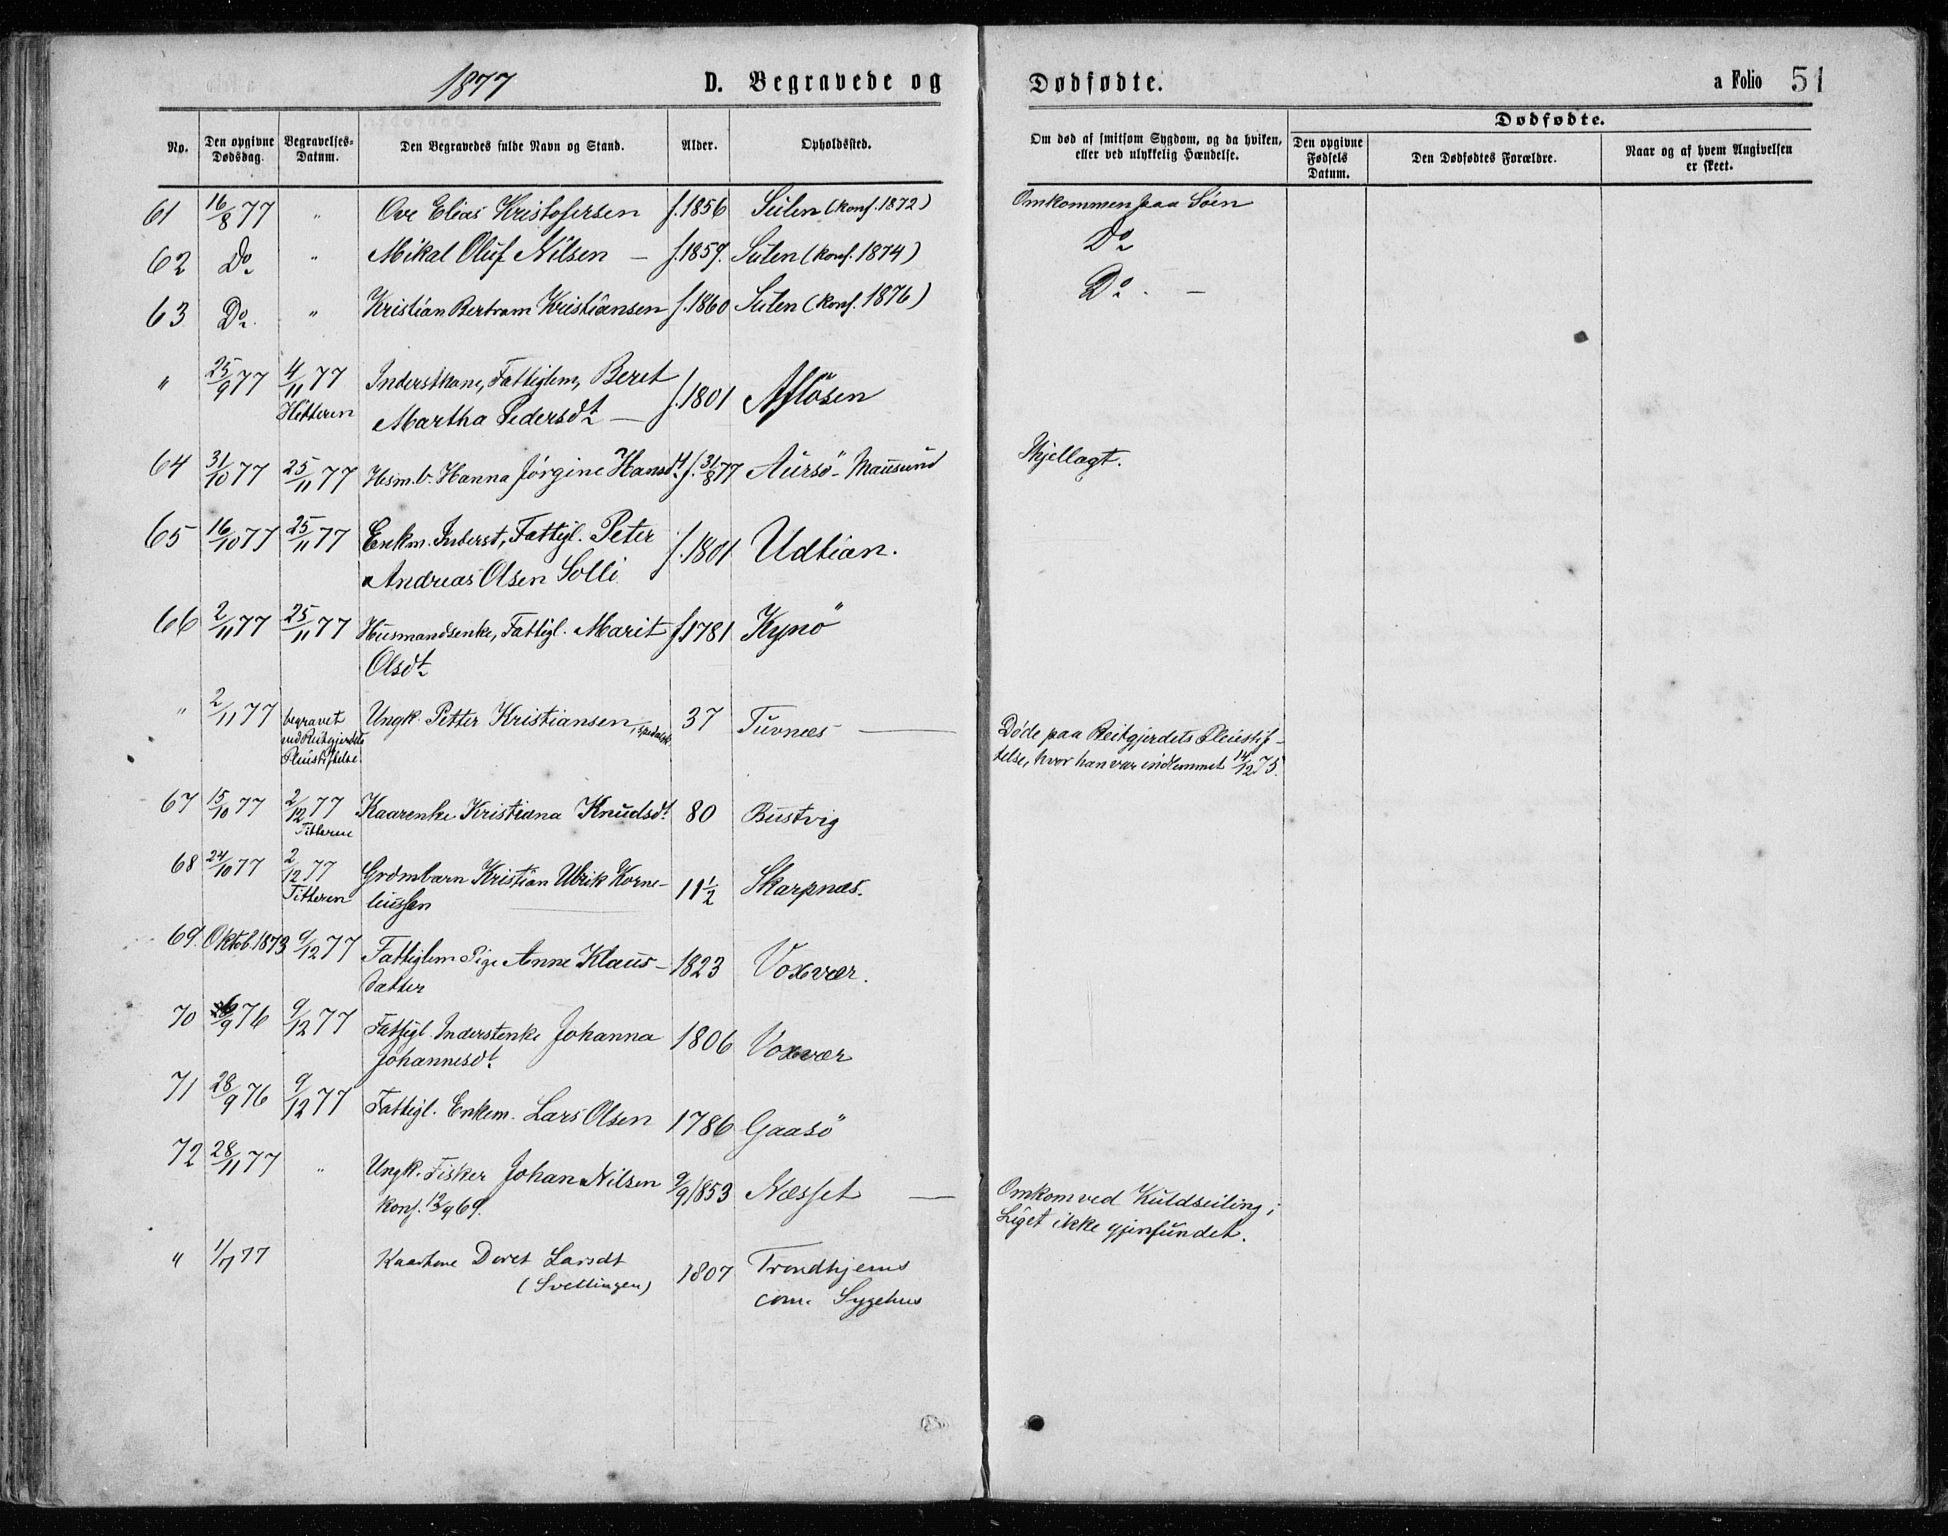 1877 D. Begravede og Dødfødte. a Folio 51
No. Den opgivne Dødsdag. Begravelses-Datum. Den Begravedes fulde Navn og Stand. Alder. Opholdssted. Om død af smitsom Sygdom, og da hvilken, eller ved ulykkelig Hændelse. Dødfødte.
Den opgivne Fødsels Datum. Den Dødfødtes Forældre. Naar og af hvem Angivelsen er skeet.
61 16/8 77 " Ove Elias Kristofersen f. 1856 Sulen (konf. 1872) Omkommen paa Söen
62 Do " Mikal Oluf Nilsen – f. 1859. Sulen (konf. 1874) Do
63 Do " Kristian Bertram Kristiansen f. 1860 Sulen (konf. 1876) Do –
" 25/9 77 4/11 77 Inderstkone, Fattiglem, Beret f. 1801 Aflösen
Hitteren Martha Pedersdt –
64 31/10 77 25/11 77 Husm.b. Hanna Jörgine Hansdt f. 31/8 77 Aursö - Mausund Ihjellagt.
65 16/10 77 25/11 77 Enkm. Inderst, Fattigl. Peter f. 1801 Udtian.
Andreas Olsen Solli
66 2/11 77 25/11 77 Husmandsenke, Fattigl. Marit f. 1781 Kynö
Olsdt
" 2/11 77 begravet ved Reitgjerdets Pleiestiftelse Ungk. Petter Kristiansen, spedalsk 37 Tuvnes – Döde paa Reitgjerdets Pleiestif-
telse, hvor han var indlemmet 14/12 75.
67 15/10 77 2/12 77 Titteren Kaarenke Kristiana Knudsdt 80 Bustvig
68 24/10 77 2/12 77 Titteren Grdmbarn Kristian Ulrik Korne- 11 1/2 Skarpnæs.
liussen
69. Oktob. 1873 9/12 77 Fattiglem Pige Anne Klaus- 1823 Voxvær.
datter
70 /9 76 9/12 77 Fattigl. Inderstenke Johanna 1806 Voxvær
Johannesdt
71 28/9 76 9/12 77 Fattigl. Enkem. Lars Olsen 1786 Gaasö
72 28/11 77 " Ungk. Fisker Johan Nilsen 9/9 1853 Næsset – Omkom ved Kuldseiling;
konf. 12/9 69. Liget ikke gjenfundet.
" 1/7 77 Kaarkone Deret Larsdt 1807 Trondhjems
(Svellingen) com. Sygehus